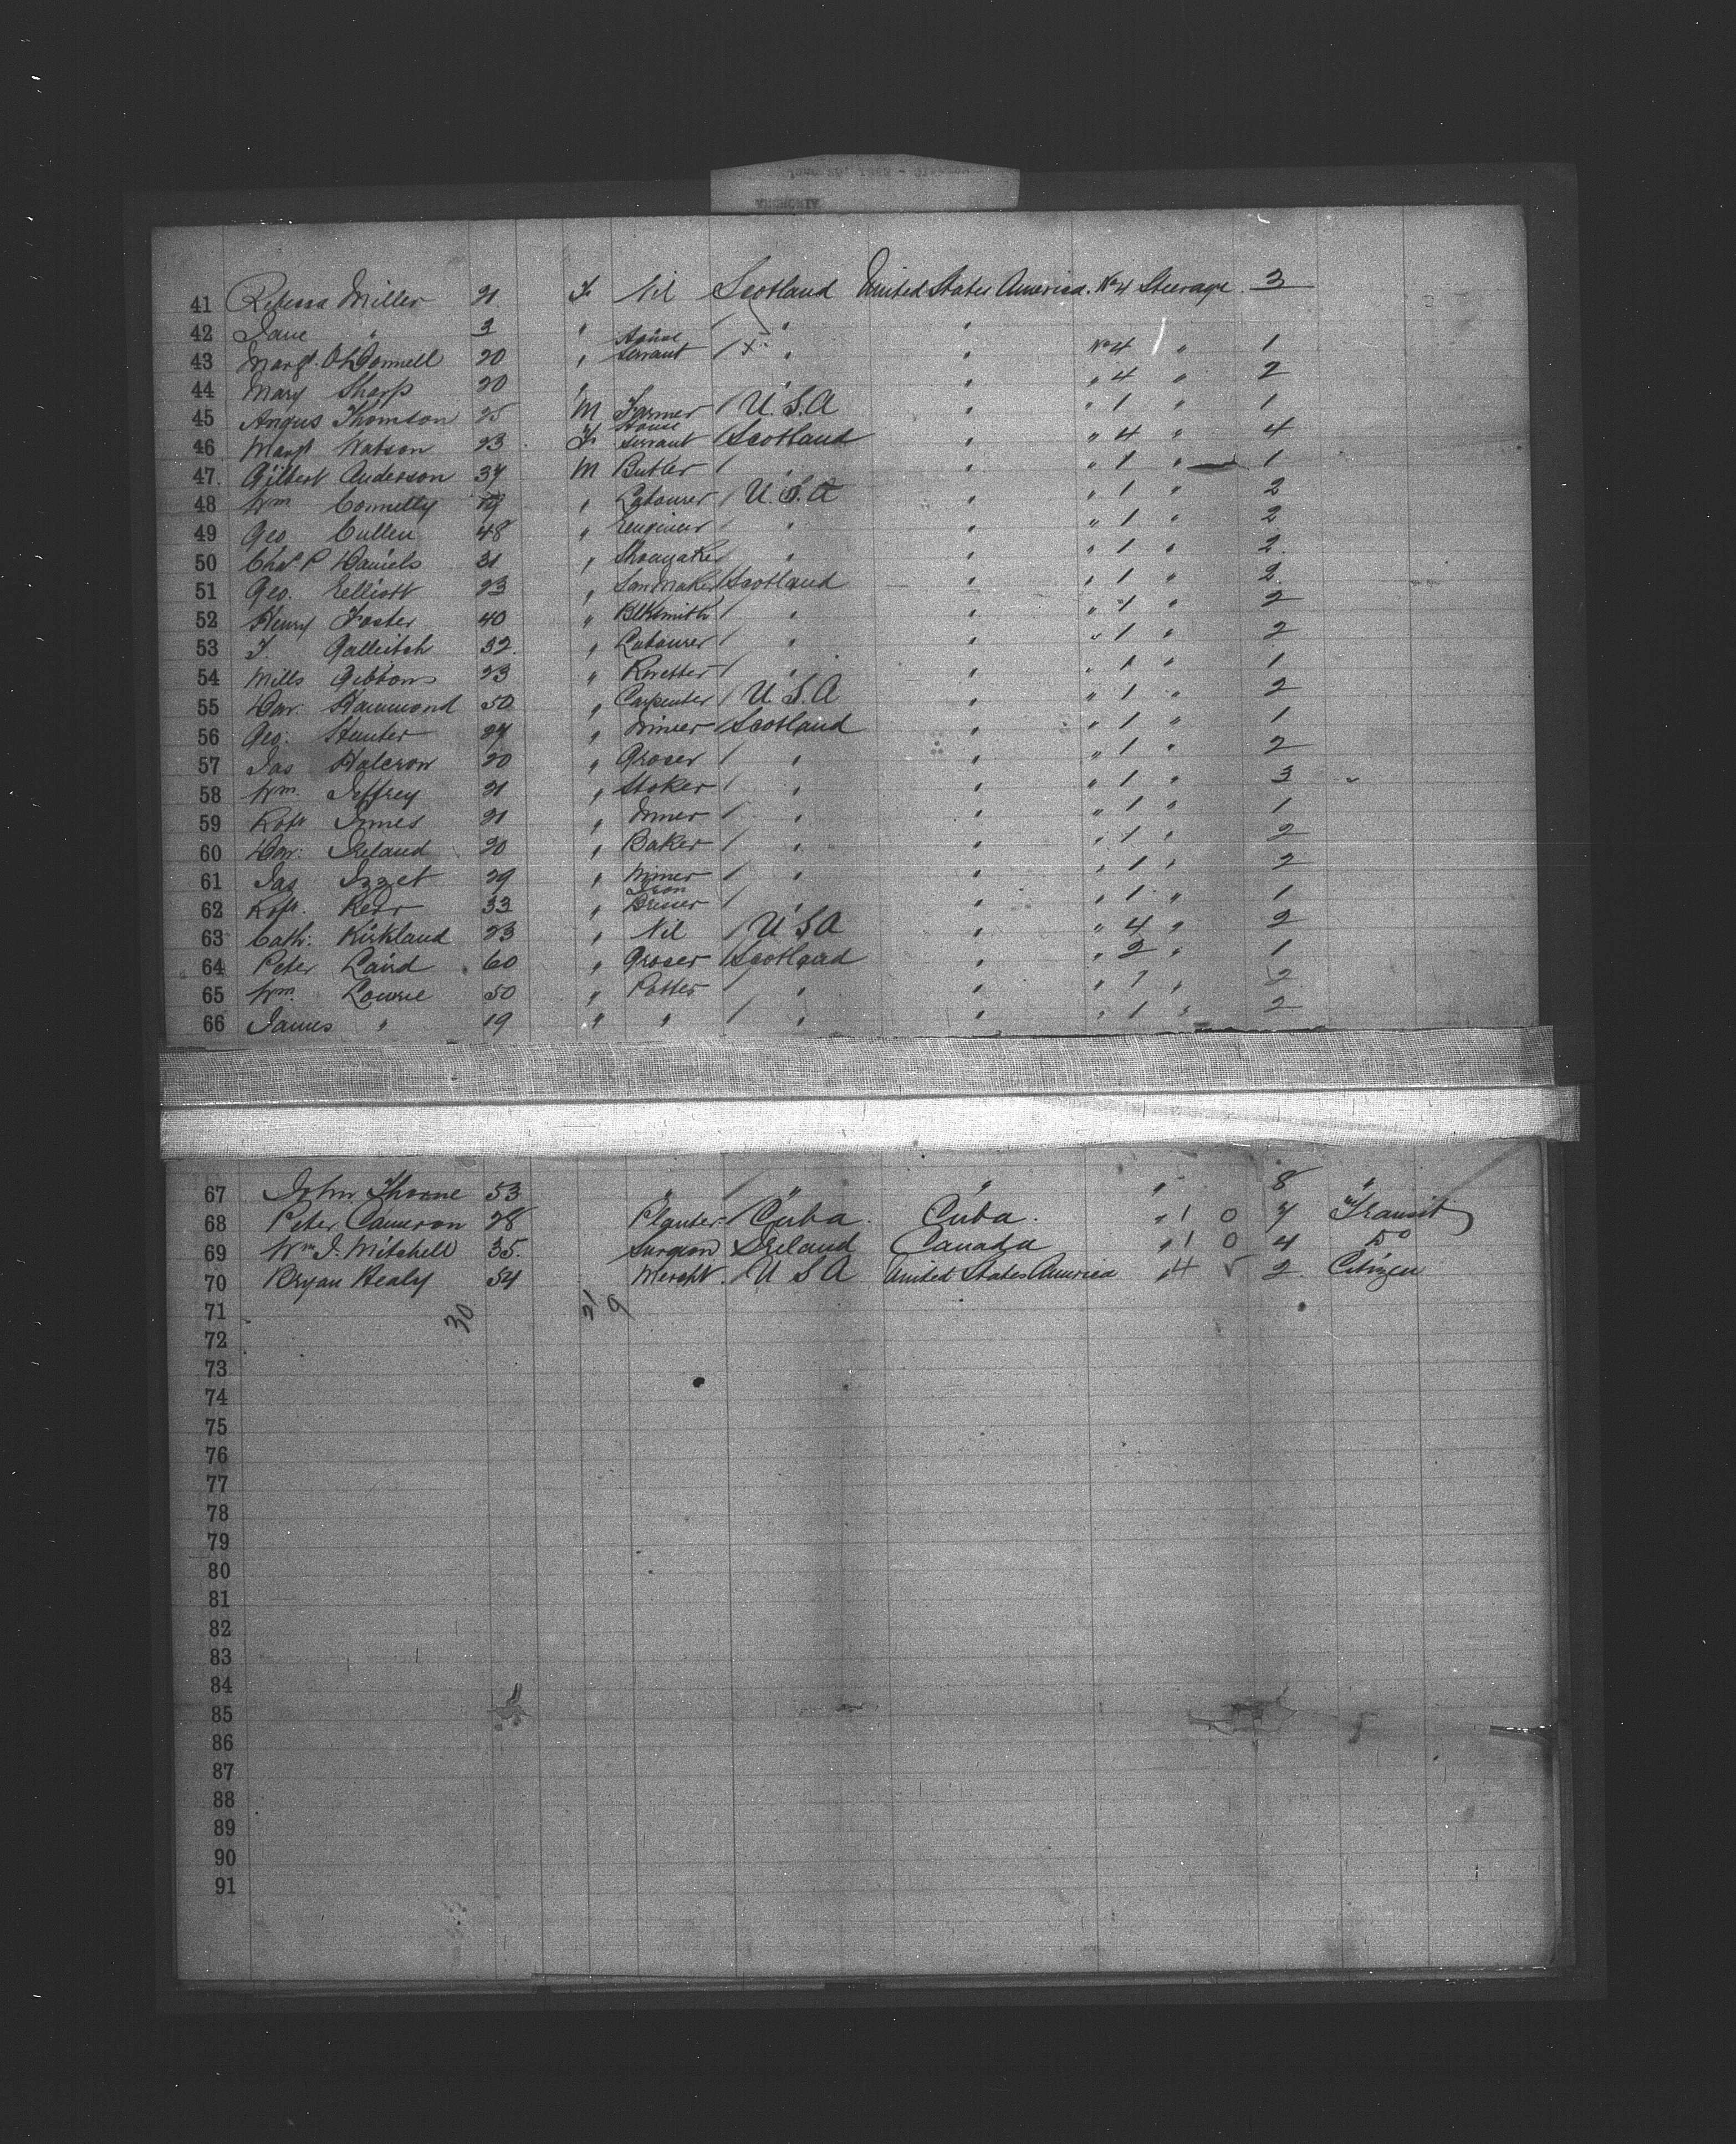 41 Rebecca Miller 21 F Nil Scotland United States America. No 4 Steerage. 3
42 Jane " 3 " / " "
43 Margt. O'Donnell 20 " House Servant / x " " No 4 / " 1
44 Mary Sharp 20 " " " " 4 " 2
45 Angus Thomson 25 M Farmer / U.S.A " " 1 " 1
46 Margt Watson 23 F House Servant / Scotland " " 4 " 4
47 Gilbert Anderson 37 M Butler / " " " 1 " 1
48 Wm Connelly " Labourer / U.S.A " " 1 " 2
49 Geo Cullen 48 " Engineer / " " " 1 " 2
50 Chas P Daniels 31 " / " " " 1 " 2
51 Geo. Elliott 23 " / Scotland " " 1 " 2
52 Henry Foster 40 " Blksmith / " " " 1 " 2
53 J. Galleitch 32 " Labourer / " " " 1 " 2
54 Mills Gibbons 23 " Rivetter / " " " 1 " 1
55 Dav. Hammond 50 " Carpenter / U.S.A " " 1 " 2
56 Geo. Hunter 27 " Miner / Scotland " " 1 " 1
57 Jas Halcron 20 " Grocer / " " " 1 " 2
58 Wm Jeffrey 21 " Stoker / " " " 1 " 3
59 Robt Innes 21 " / " " " 1 " 1
60 Dav. Ireland 20 " Baker / " " " 1 " 2
61 Jas Izzet 29 " Miner / " " " 1 " 2
62 Robt. Kerr 33 " Iron / " " " 1 " 1
63 Cath: Kirkland 23 " Nil / U S A " " 4 " 2
64 Peter Laird 60 " Grocer / Scotland " " 2 " 1
65 Wm. Lowrie 50 " Potter / " " " 1 " 2
66 James " 19 " " / " " " 1 " 2
67 John Thorne 53 " / " " " 8 "
68 Peter Cameron 28 Planter / Cuba. Cuba. " 1 0 7 Transit
69 Wm J. Mitchell 35. Surgeon Ireland Canada " 1 0 4 Do
70 Bryan Healy 54 Mercht. U S A United States America " 4 2 Citizen
71 30 21 9
72
73
74
75
76
77
78
79
80
81
82
83
84
85
86
87
88
89
90
91